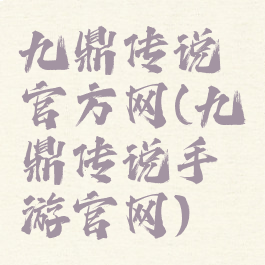 九鼎传说
官方网(九
鼎传说手
游官网)